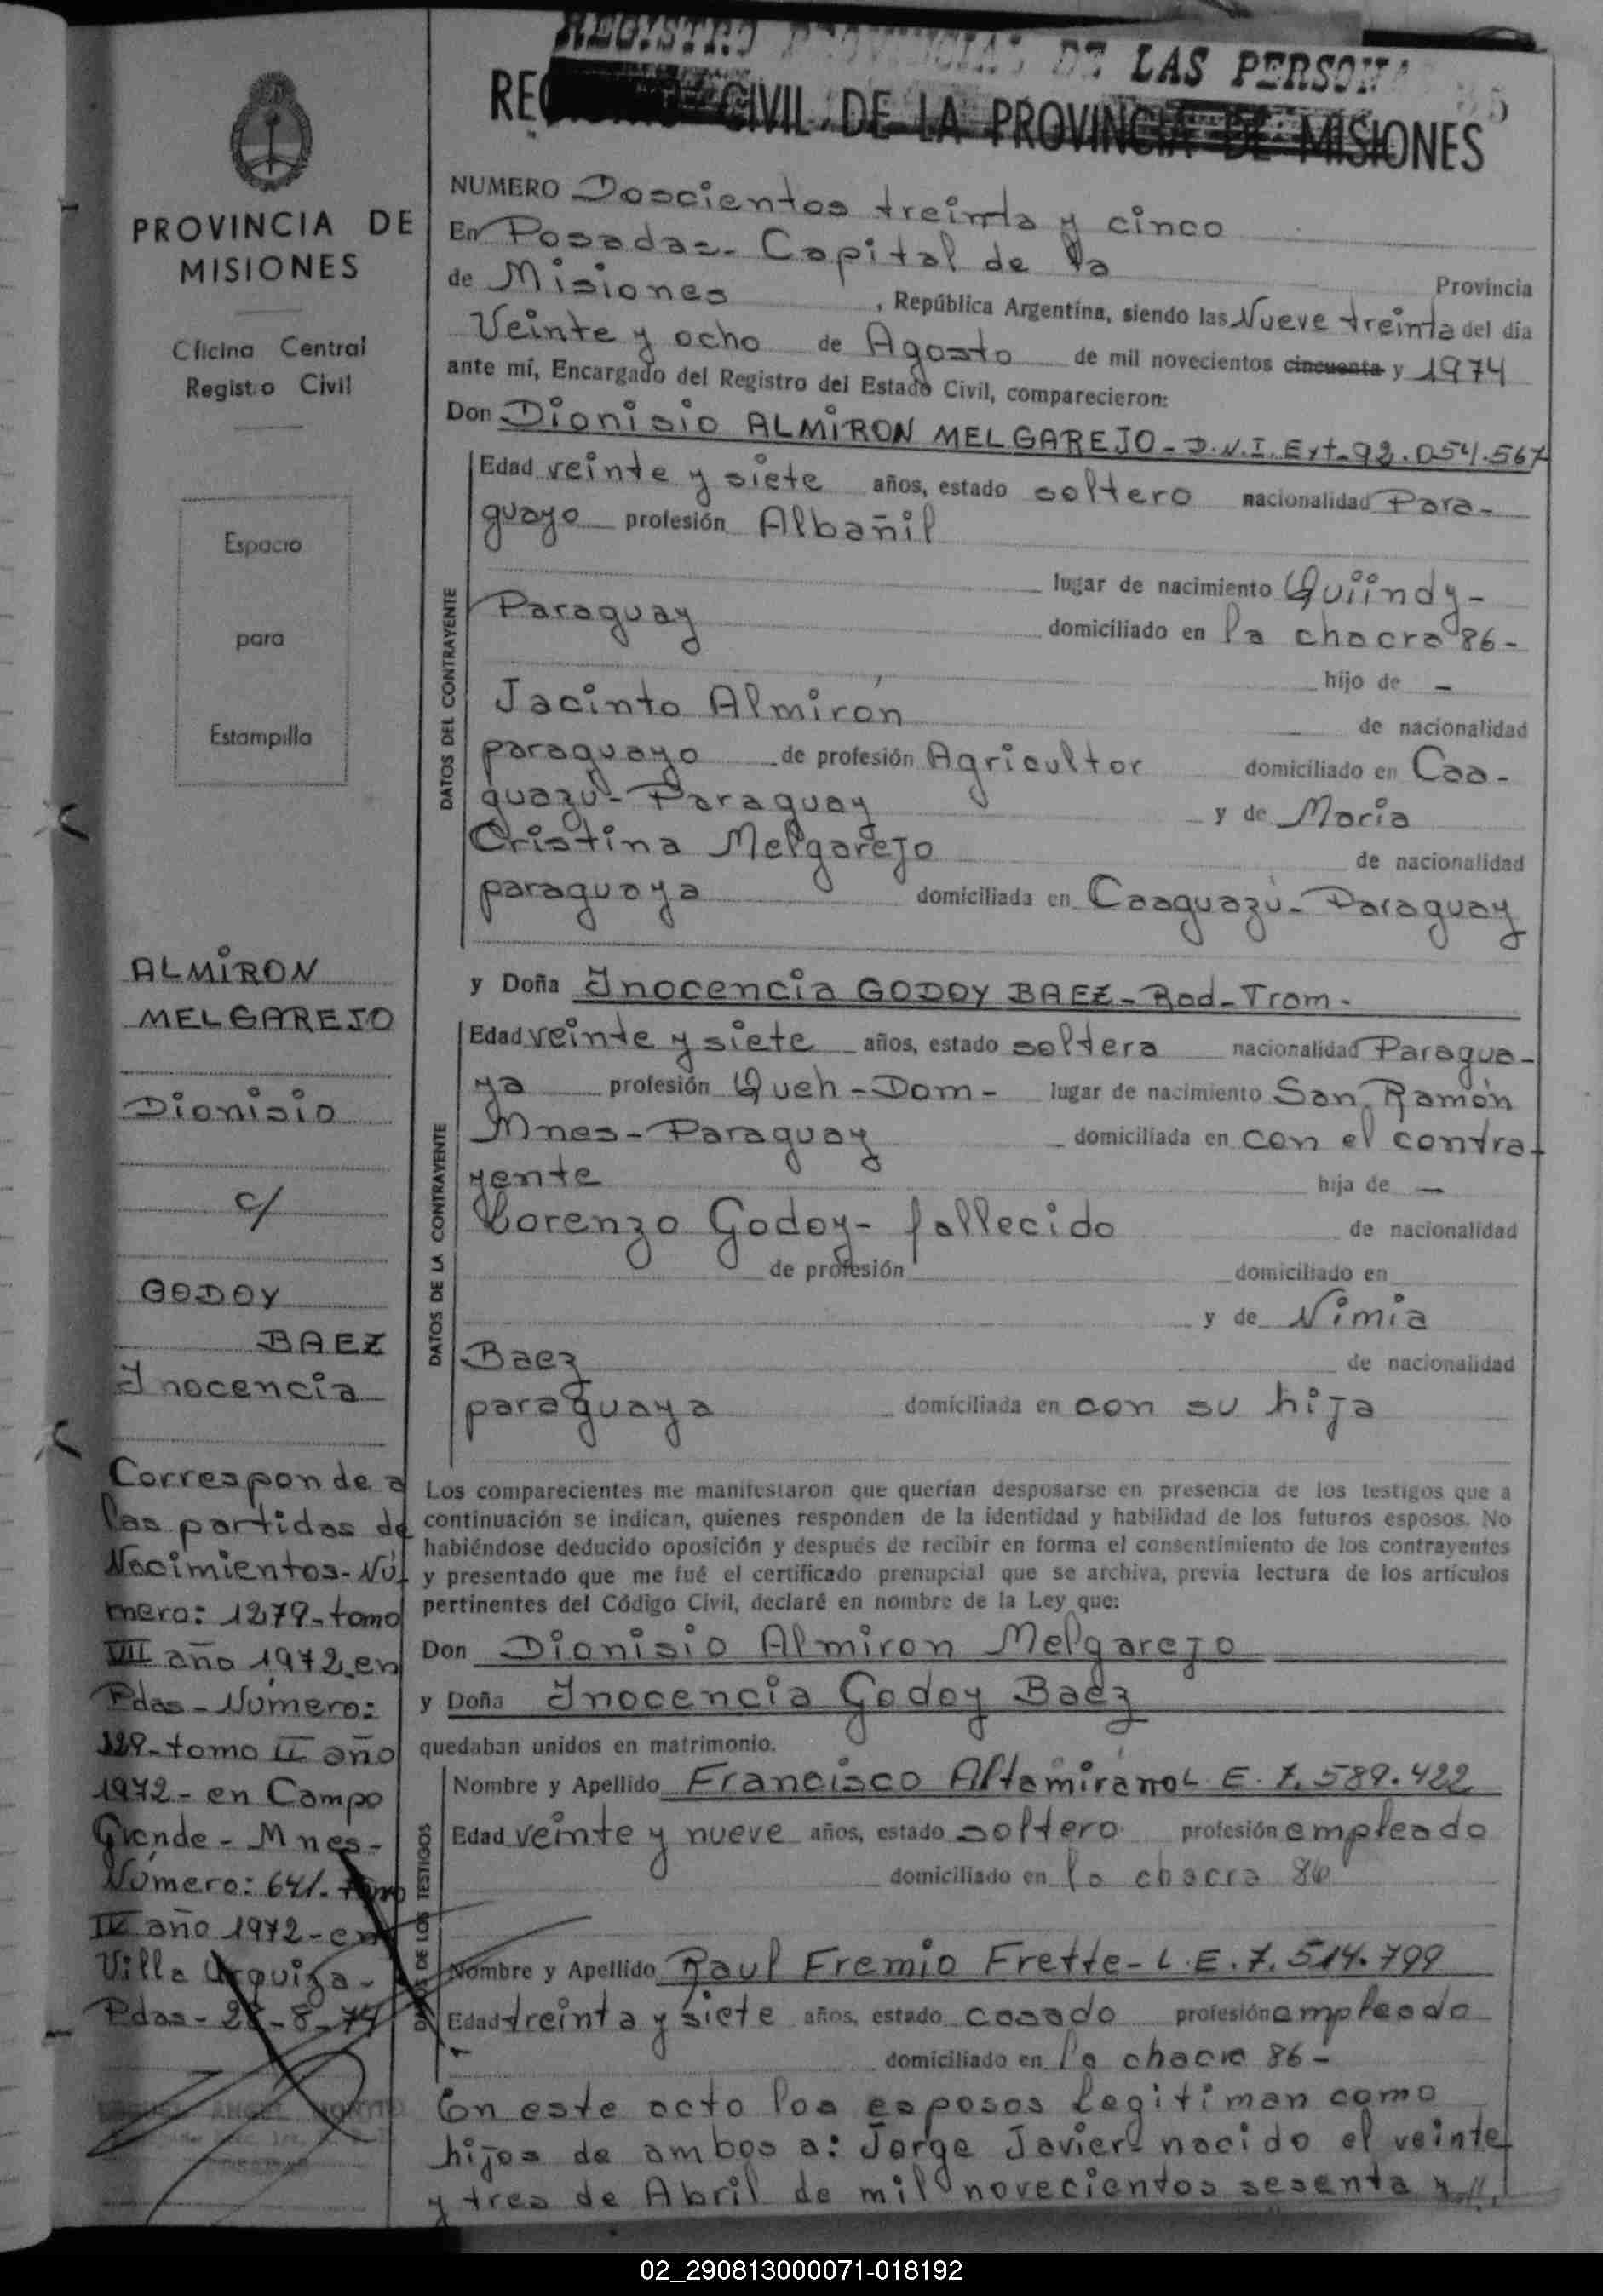 REGISTRO PROVINCIAL DE LAS PERSONAS
REGISTRO CIVIL DE LA PROVINCIA DE MISIONES
PROVINCIA DE
MISIONES
Oficina Central
Registro Civil
Espacio
para
Estampilla
ALMIRON
MELGAREJO
Dionisio
c/
GODOY
BAEZ
Inocencia
Corresponde a
las partidas de
Nacimientos-Nú-
mero: 1279-tomo
VII año 1972 en
Pdas-Número:
329-tomo II año
1972- en Campo
Grande - Mnes-
Número: 641. tomo
IV año 1972-en
Villa Urquiza-
Pdas- 28-8-74
NUMERO Doscientos treinta y cinco
En Posadas- Capital de la
Provincia
de Misiones , República Argentina, siendo las Nueve treinta del día
Veinte y ocho de Agosto de mil novecientos cincuenta y 1974
ante mí, Encargado del Registro del Estado Civil, comparecieron:
Don Dionisio ALMIRON MELGAREJO-D.N.I. Ext-92.054.567
DATOS DEL CONTRAYENTE
Edad veinte y siete años, estado soltero nacionalidad Para-
guayo profesión Albañil
lugar de nacimiento Quiindy-
Paraguay domiciliado en la chacra 86-
hijo de -
Jacinto Almirón de nacionalidad
paraguayo de profesión Agricultor domiciliado en Caa-
guazú- Paraguay y de Maria
Cristina Melgarejo de nacionalidad
paraguaya domiciliada en Caaguazú- Paraguay
y Doña Inocencia GODOY BAEZ-Rad-Tram-
DATOS DE LA CONTRAYENTE
Edad veinte y siete años, estado soltera nacionalidad Paragua-
ya profesión Queh-Dom- lugar de nacimiento San Ramón
Mnes-Paraguay domiciliada en con el contra-
yente hija de -
Lorenzo Godoy- fallecido de nacionalidad
de profesión domiciliado en
y de Nimia
Baez de nacionalidad
paraguaya domiciliada en con su hija
Los comparecientes me manifestaron que querían desposarse en presencia de los testigos que a
continuación se indican, quienes responden de la identidad y habilidad de los futuros esposos. No
habiéndose deducido oposición y después de recibir en forma el consentimiento de los contrayentes
y presentado que me fué el certificado prenupcial que se archiva, previa lectura de los artículos
pertinentes del Código Civil, declaré en nombre de la Ley que:
Don Dionisio Almiron Melgarejo
y Doña Inocencia Godoy Baez
quedaban unidos en matrimonio.
DATOS DE LOS TESTIGOS
Nombre y Apellido Francisco Altamirano L.E. 7.589.422
Edad veinte y nueve años, estado soltero profesión empleado
domiciliado en la chacra 86
Nombre y Apellido Raul Fremio Frette-L.E.7.514.799
Edad treinta y siete años, estado casado profesión empleado
domiciliado en la chacra 86-
En este acto los esposos legitiman como
hijos de ambos a: Jorge Javier nacido el veinte
y tres de Abril de mil novecientos sesenta y //
02_290813000071-018192